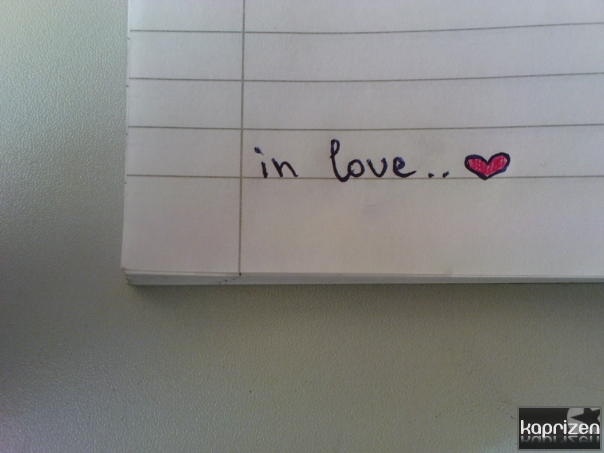 in love..
kaprizen